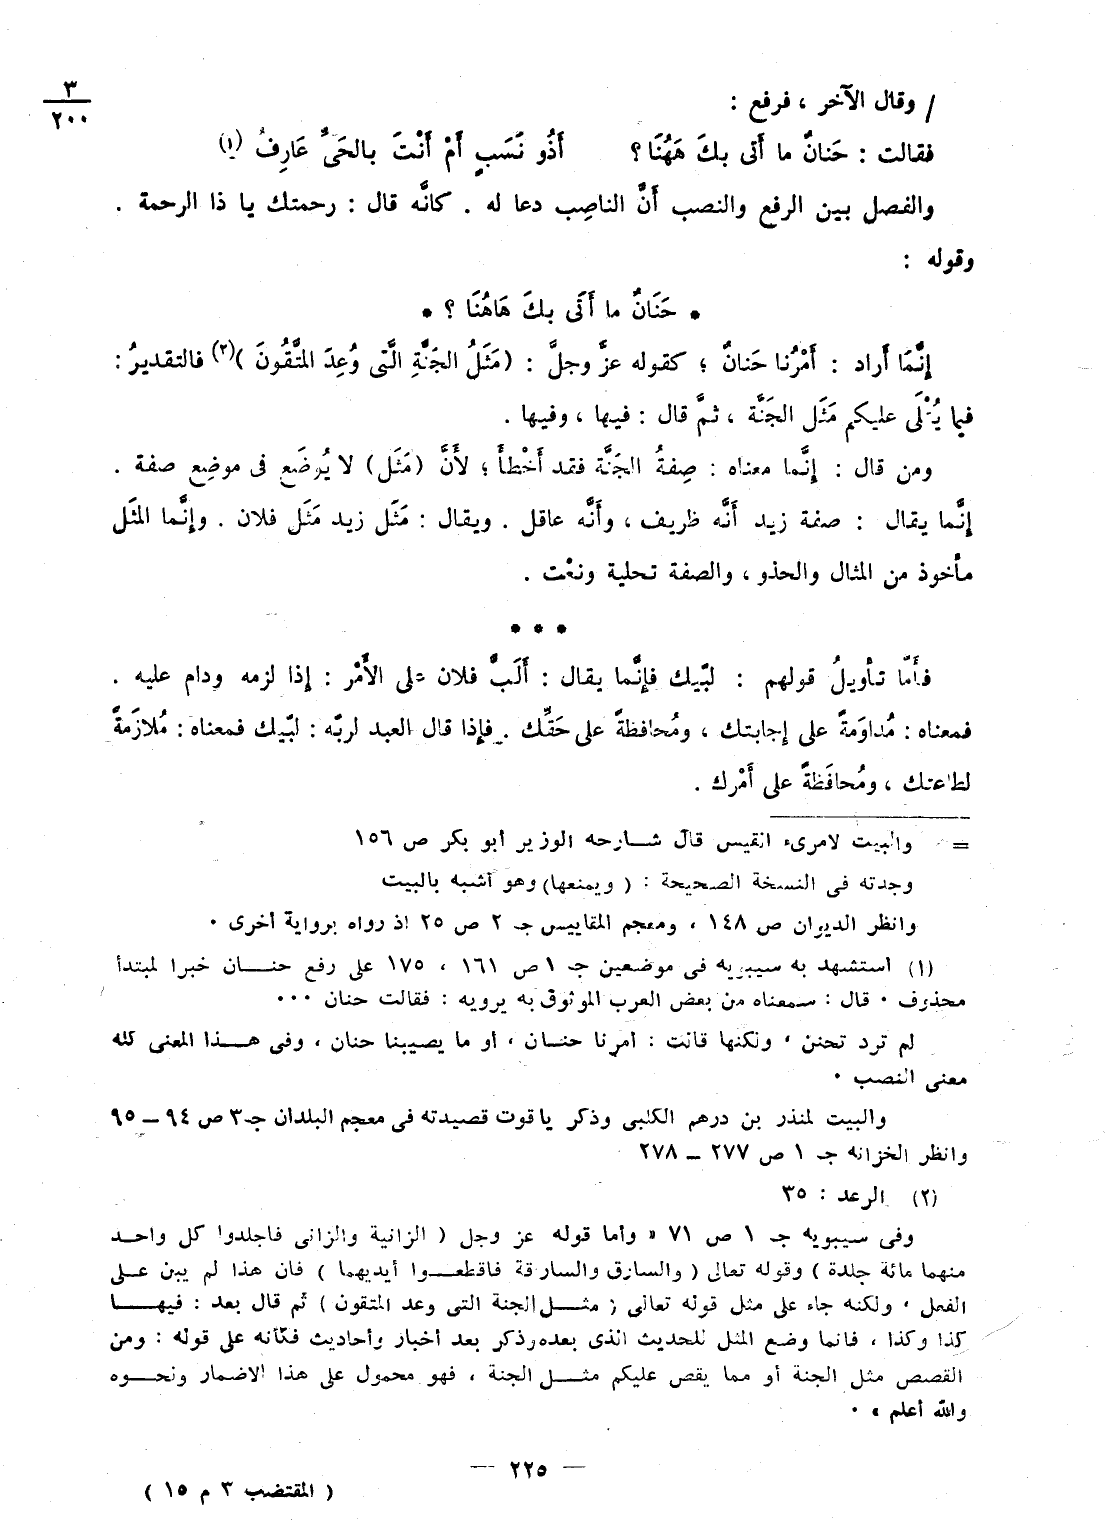 ٣
٢٠٠
/ وقال الآخر ، فرفع :
فقالت : حَنانٌ ما أَتى بكَ هَهُنَا ؟ أَذُو نَسَبٍ أَمْ أَنْتَ بالحَىِّ عَارِفُ (١)
والفصل بين الرفع والنصب أَنَّ الناصِب دعا له . كأنَّه قال : رحمتك يا ذا الرحمة .
وقوله :
• حَنَانٌ ما أَتَى بكَ هَاهُنَا ؟ •
إِنَّمَا أَراد : أَمْرُنا حَنانٌ ؛ كقوله عزَّ وجلَّ : (مَثَلُ الجَنَّةِ الَّتى وُعِدَ المتَّقُونَ )(٢) فالتقديرُ :
فيما يُتْلَى عليكم مَثَل الجَنَّة ، ثمَّ قال : فيها ، وفيها .
ومن قال : إِنَّما معناه : صِفةُ الجَنَّة فقد أَخْطأَ ؛ لأَنَّ (مَثَل) لا يُوضَع فى موضِع صفة .
إنَّما يقال : صفة زيد أَنَّه ظريف ، وأَنَّه عاقل . ويقال : مَثَل زيد مَثَل فلان . وإنَّما المثَل
مأْخوذ من المثال والحذو ، والصفة تحلية ونعْت .
• • •
فأَمّا تأْويلُ قولهم : لبّيك فإنَّما يقال : أَلَبَّ فلان على الأَمْر : إذا لزمه ودام عليه .
فمعناه : مُداوَمةً على إجابتك ، ومُحافظةً على حَقِّك . فإذا قال العبد لربّه : لبّيك فمعناه : مُلازَمةً
لطاعتك ، ومُحافَظةً على أَمْرك .
= والبيت لامرىء القيس قال شارحه الوزير أبو بكر ص ١٥٦
وجدته فى النسخة الصحيحة : ( ويمنعها) وهو أشبه بالبيت
وانظر الديوان ص ١٤٨ ، ومعجم المقاييس جـ ٢ ص ٢٥ اذ رواه برواية أخرى .
(١) استشهد به سيبويه فى موضعين جـ ١ ص ١٦١ ، ١٧٥ على رفع حنان خبرا لمبتدأ
محذوف . قال : سمعناه من بعض العرب الموثوق به يرويه : فقالت حنان ...
لم ترد تحنن ، ولكنها قالت : أمرنا حنان ، أو ما يصيبنا حنان ، وفى هذا المعنى كله
معنى النصب .
والبيت لمنذر بن درهم الكلبى وذكر ياقوت قصيدته فى معجم البلدان جـ٣ ص ٩٤ – ٩٥
وانظر الخزانه جـ ١ ص ٢٧٧ – ٢٧٨
(٢) الرعد : ٣٥
وفى سيبويه جـ ١ ص ٧١ « وأما قوله عز وجل ( الزانية والزانى فاجلدوا كل واحد
منهما مائة جلدة ) وقوله تعالى ( والسارق والسارقة فاقطعوا أيديهما ) فان هذا لم يبن على
الفعل ، ولكنه جاء على مثل قوله تعالى ( مثل الجنة التى وعد المتقون ) ثم قال بعد : فيها
كذا وكذا ، فانما وضع المثل للحديث الذى بعده وذكر بعد أخبار وأحاديث فكأنه على قوله : ومن
القصص مثل الجنة أو مما يقص عليكم مثل الجنة ، فهو محمول على هذا الاضمار ونحوه
والله أعلم » .
— ٢٢٥ —
( المقتضب ٣ م ١٥ )